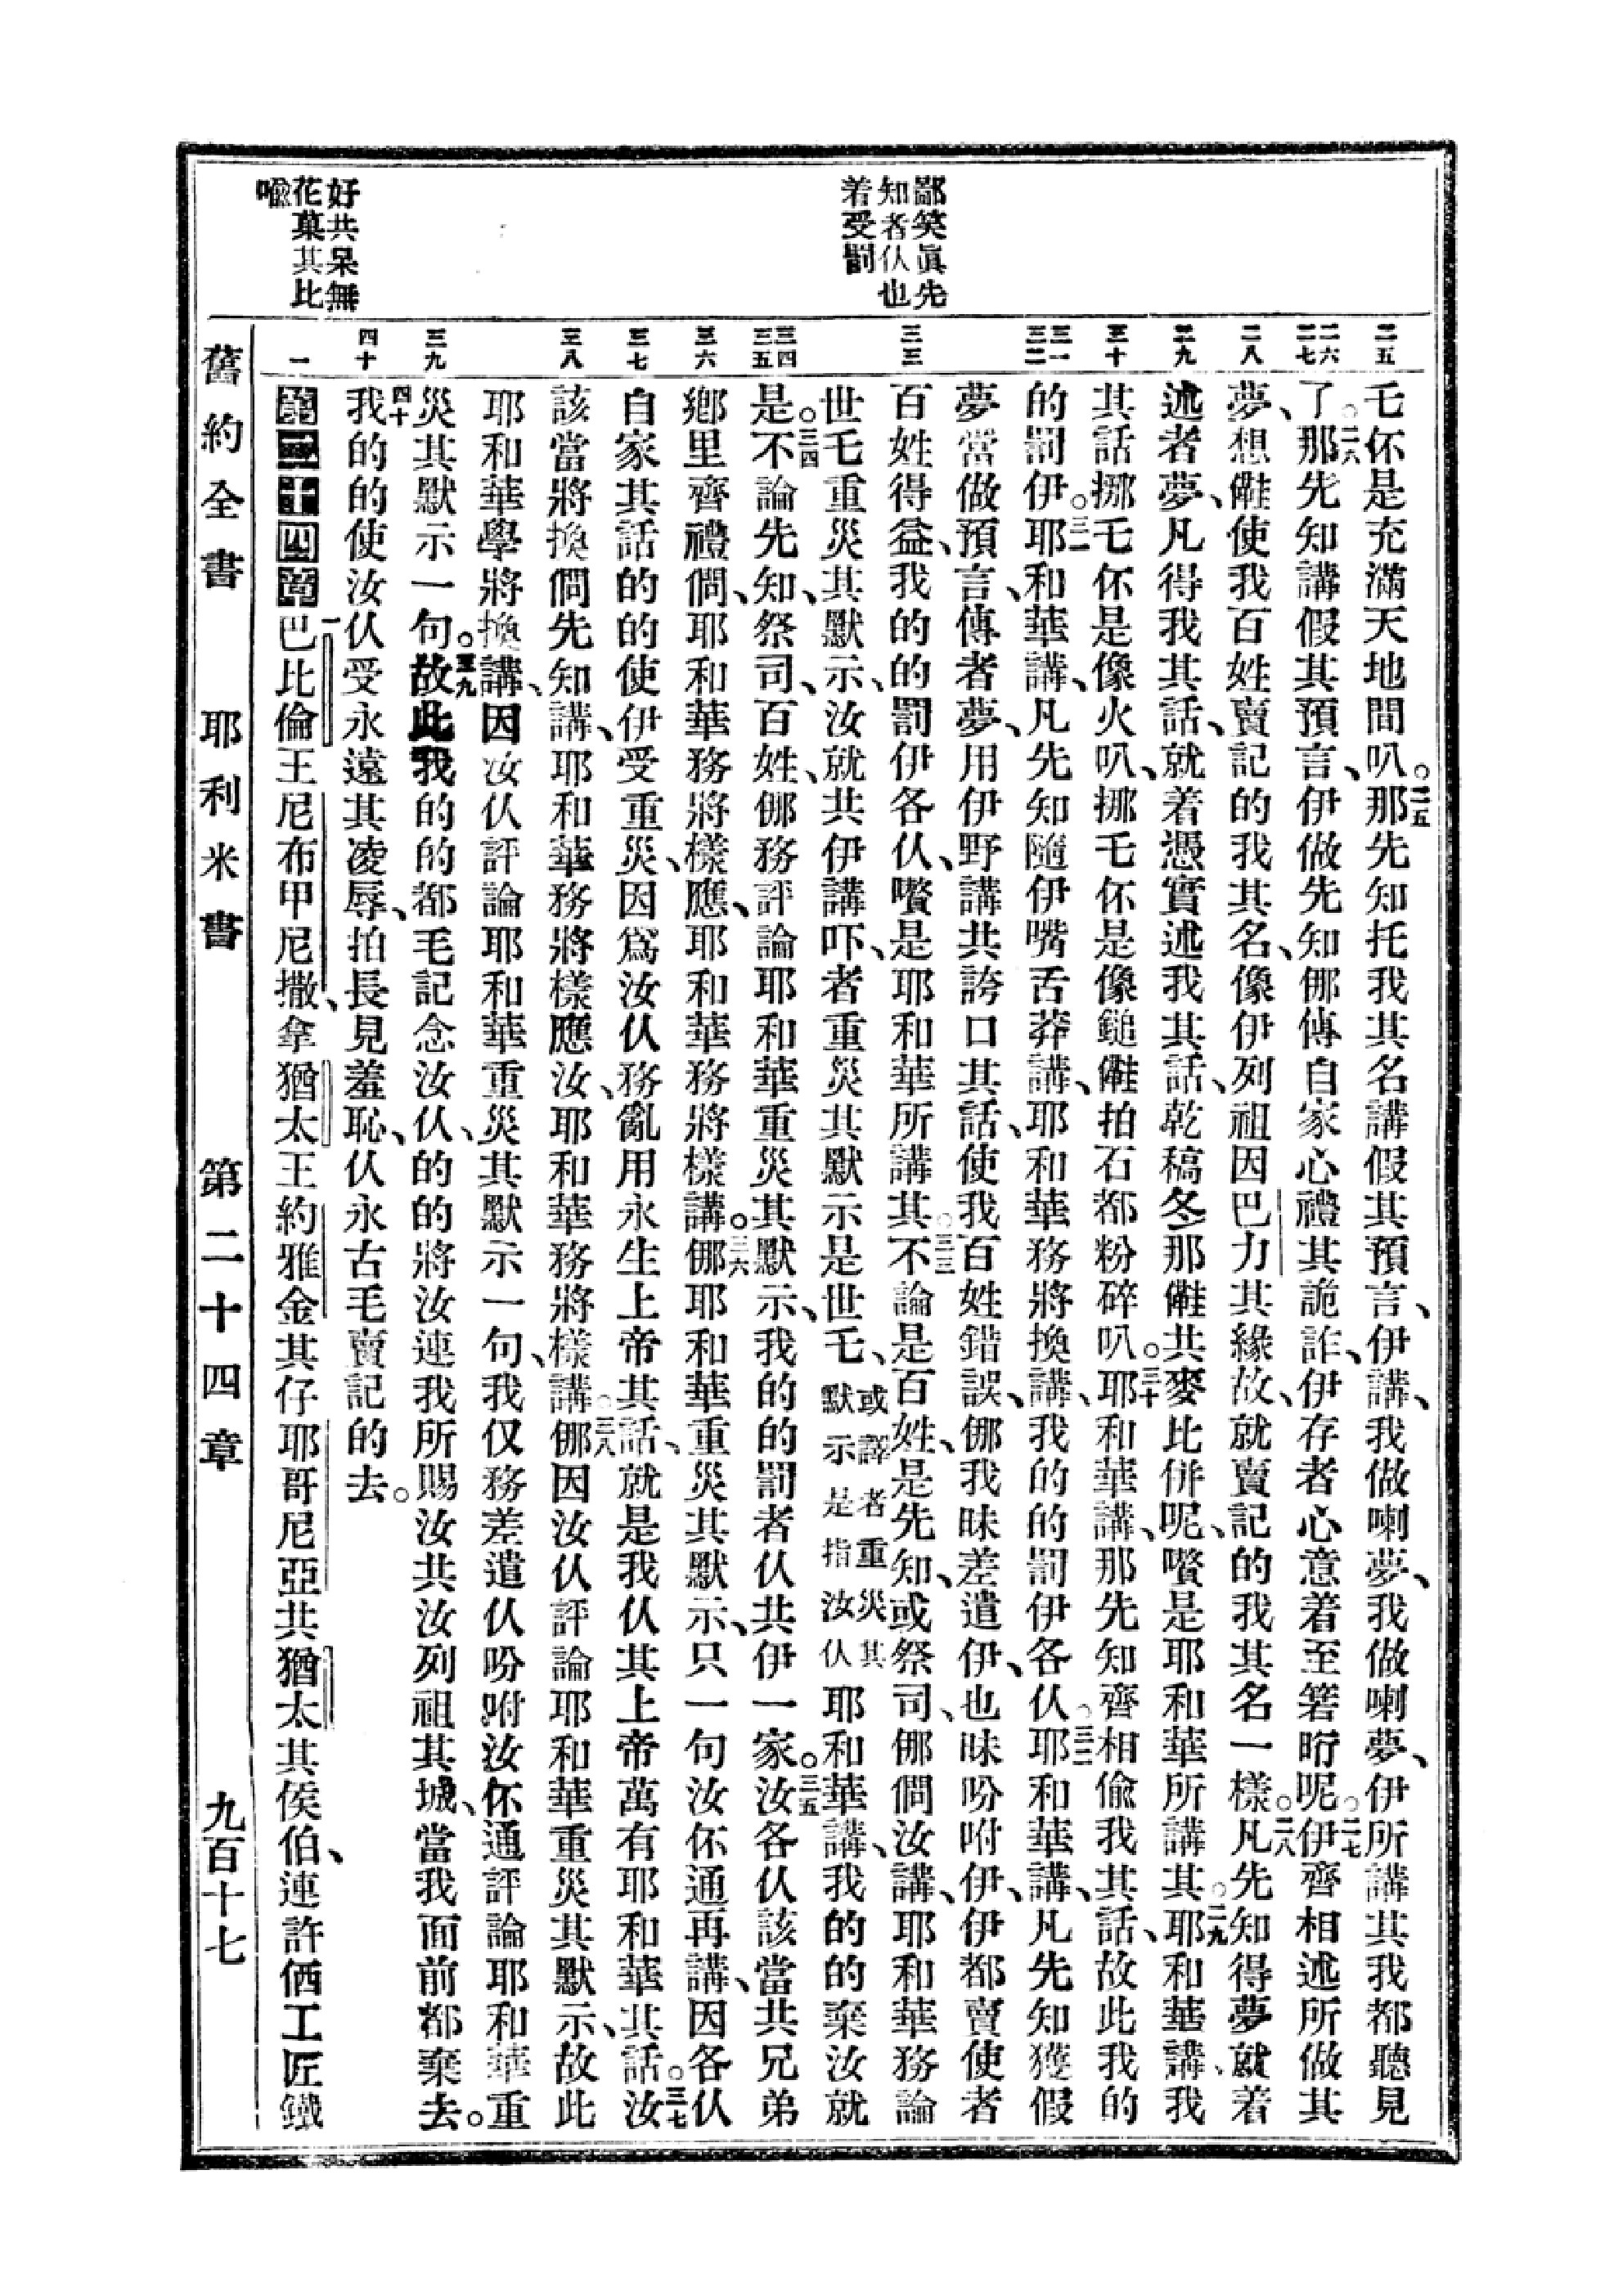 鄙笑眞先
知者仈也
着受罰
好共呆無
花菓其比
喩
二五
二六
二七
二八
二九
三十
三一
三二
三三
三四
三五
三六
三七
三八
三九
四十
一
乇伓是充滿天地間叭。二五那先知托我其名講假其預言、伊講、我做喇夢、我做喇夢、伊所講其我都聽見
了。二六那先知講假其預言、伊做先知㑚傳自家心禮其詭詐、伊存者心意着至䇢㫄呢。二七伊齊相述所做其
夢、想㒕使我百姓賣記的我其名、像伊列祖因巴力其緣故、就賣記的我其名一樣。二八凡先知得夢就着
述者夢、凡得我其話、就着憑實述我其話、乾稿冬那㒕共麥比併呢、嚽是耶和華所講其。二九耶和華講、我
其話挪乇伓是像火叭、挪乇伓是像鎚㒕拍石都粉碎叭。三十耶和華講、那先知齊相偷我其話、故此我的
的罰伊。三一耶和華講、凡先知隨伊嘴舌莽講、耶和華務將換講、我的的罰伊各仈。三二耶和華講、凡先知獲假
夢當做預言、傳者夢、用伊野講共誇口其話、使我百姓錯誤、㑚我昧差遣伊、也昧吩咐伊、伊都賣使者
百姓得益、我的的罰伊各仈、嚽是耶和華所講其。三三不論是百姓、是先知、或祭司、㑚問汝講、耶和華務論
世乇重災其默示、汝就共伊講吓、者重災其默示是世乇、或譯者重災其默示是指汝仈耶和華講、我的的棄汝就
是。三四不論先知、祭司、百姓、㑚務評論耶和華重災其默示、我的的罰者仈共伊一家。三五汝各仈該當共兄弟
鄉里齊禮問、耶和華務將樣應、耶和華務將樣講。三六㑚耶和華重災其默示、只一句汝伓通再講、因各仈
自家其話的的使伊受重災、因爲汝仈務亂用永生上帝其話、就是我仈其上帝萬有耶和華其話。三七汝
該當將換問先知講、耶和華務將樣應汝、耶和華務將樣講。三八㑚因汝仈評論耶和華重災其默示、故此
耶和華學將換講、因汝仈評論耶和華重災其默示一句、我仅務差遣仈吩咐汝伓通評論耶和華重
災其默示一句。三九故此我的的都乇記念汝仈、的的將汝連我所賜汝共汝列祖其城、當我面前都棄去。
四十我的的使汝仈受永遠其凌辱、拍長見羞恥、仈永古乇賣記的去。
第二十四章一巴比倫王尼布甲尼撒、拿猶太王約雅金其仔耶哥尼亞共猶太其侯伯、連許価工匠鐵
舊約全書　耶利米書　第二十四章　九百十七